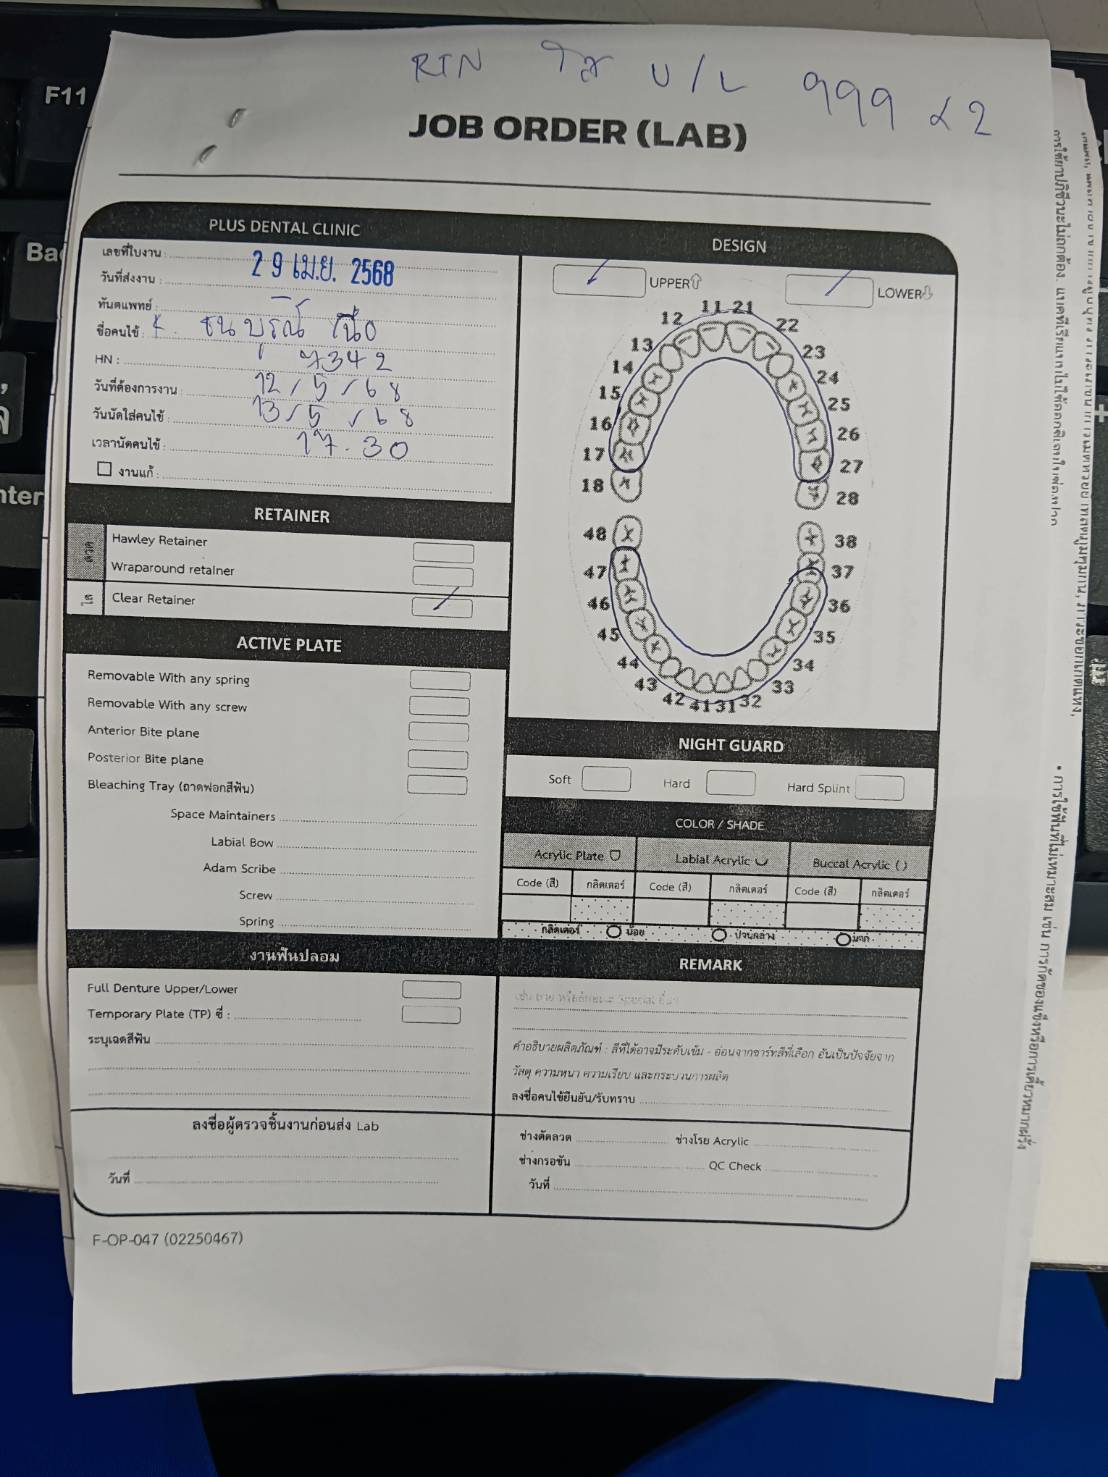 RTN ใส U/L 999 x 2
JOB ORDER (LAB)
PLUS DENTAL CLINIC
เลขที่ใบงาน :
วันที่ส่งงาน : 29 เม.ย. 2568
ทันตแพทย์ :
ชื่อคนไข้ :
HN : 7342
วันที่ต้องการงาน : 12/5/68
วันนัดใส่คนไข้ : 13/5/68
เวลานัดคนไข้ : 17.30
งานแก้ :
RETAINER
ลวด
Hawley Retainer
Wraparound retainer
ใส
Clear Retainer
ACTIVE PLATE
Removable With any spring
Removable With any screw
Anterior Bite plane
Posterior Bite plane
Bleaching Tray (ถาดฟอกสีฟัน)
Space Maintainers
Labial Bow
Adam Scribe
Screw
Spring
งานฟันปลอม
Full Denture Upper/Lower
Temporary Plate (TP) ซี่ :
ระบุเฉดสีฟัน
ลงชื่อผู้ตรวจชิ้นงานก่อนส่ง Lab
วันที่
DESIGN
UPPER LOWER
11 21
12 22
13 23
14 24
15 25
16 26
17 27
18 28
48 38
47 37
46 36
45 35
44 34
43 33
42 41 31 32
NIGHT GUARD
Soft Hard Hard Splint
COLOR / SHADE
Acrylic Plate Labial Acrylic Buccal Acrylic ( )
Code (สี) กลิตเตอร์ Code (สี) กลิตเตอร์ Code (สี) กลิตเตอร์
กลิตเตอร์ น้อย ปานกลาง มาก
REMARK
คำอธิบายผลิตภัณฑ์ : สีที่ได้อาจมีระดับเข้ม - อ่อนจากชาร์ทสีที่เลือก อันเป็นปัจจัยจาก
วัสดุ ความหนา ความเรียบ และกระบวนการผลิต
ลงชื่อคนไข้ยืนยัน/รับทราบ
ช่างดัดลวด ช่างโรย Acrylic
ช่างกรอขัน QC Check
วันที่
F-OP-047 (02250467)
F11